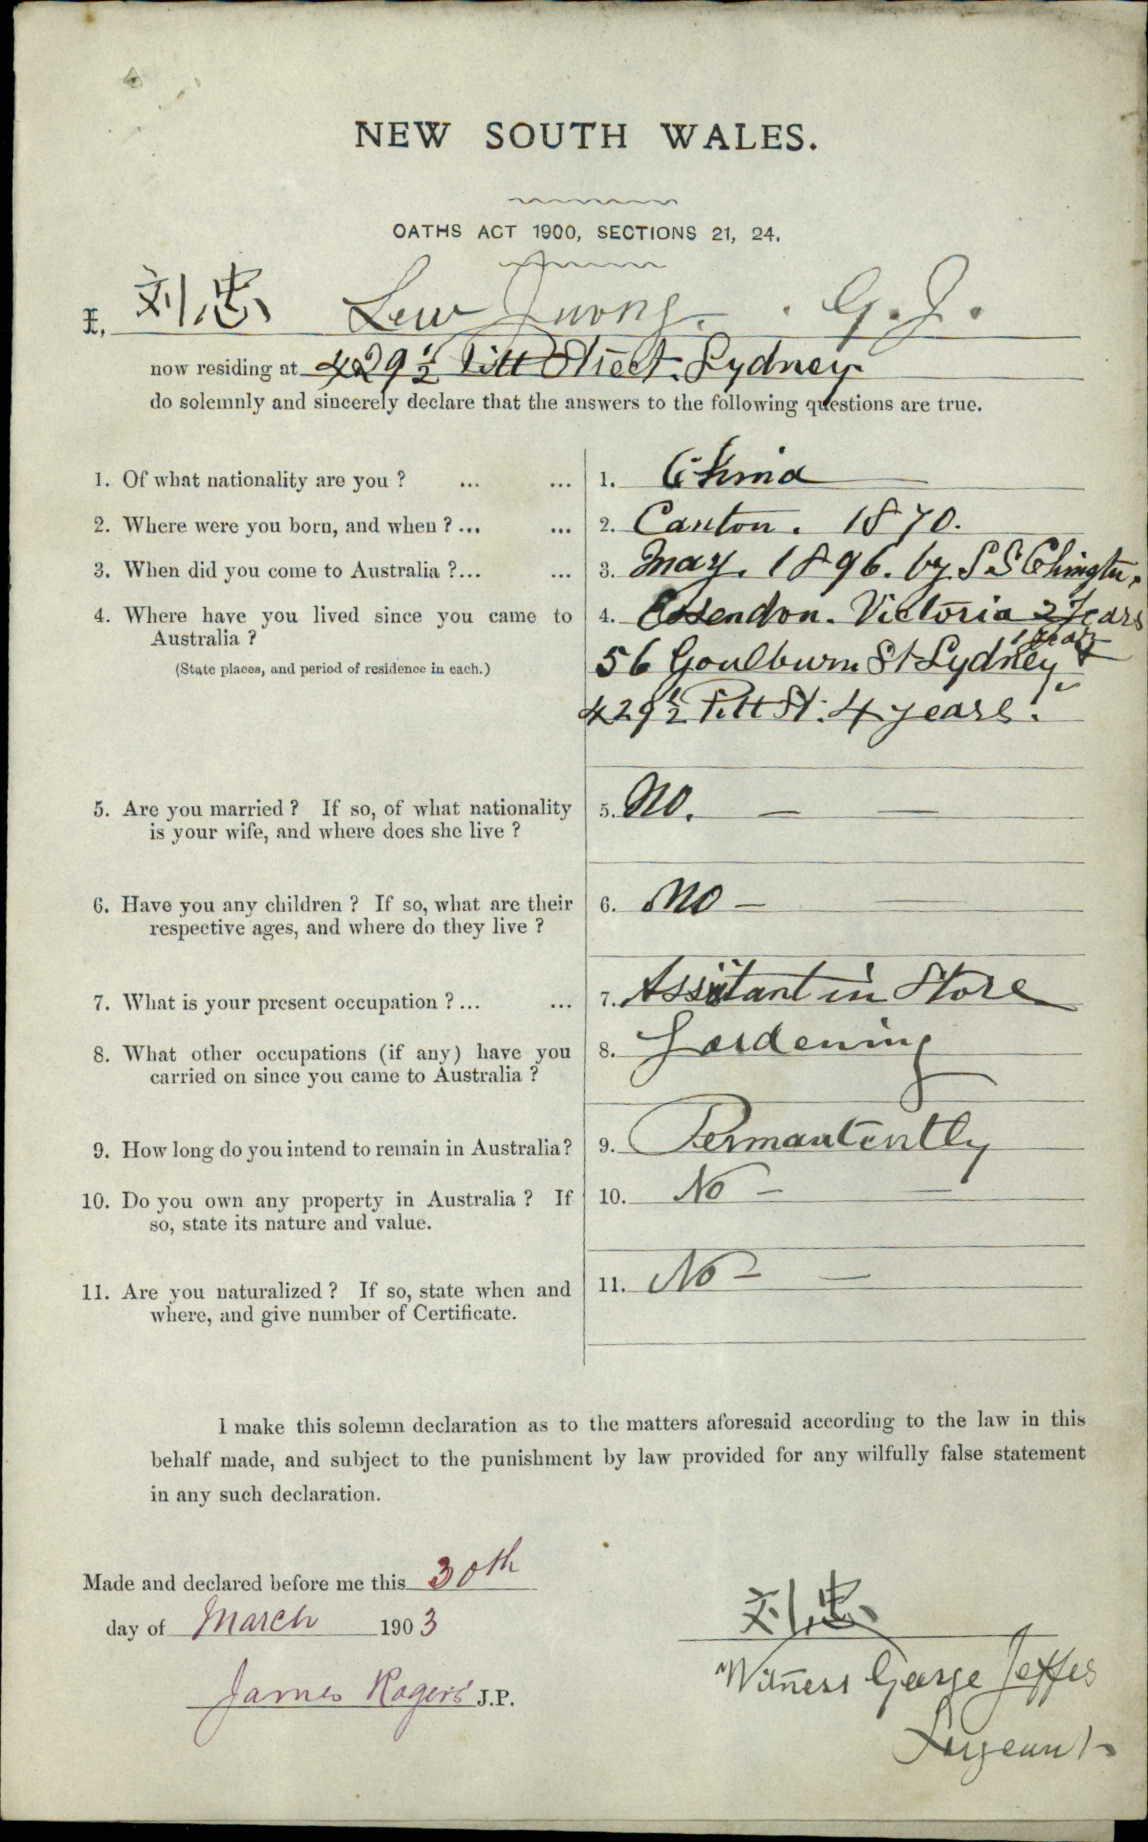 NEW SOUTH WALES.
OATHS ACT 1900, SECTIONS 21, 24.
I, 刘忠 Lew Juong. G. J.
now residing at 429½ Pitt Street. Sydney
do solemnly and sincerely declare that the answers to the following questions are true.
1. Of what nationality are you ? ... ... 1. China
2. Where were you born, and when ? ... ... 2. Canton. 1870.
3. When did you come to Australia ?... ... 3. May. 1896. by S.S Chingtu.
4. Where have you lived since you came to 4. Essendon. Victoria 2 years
Australia ?
1 year
(State places, and period of residence in each.) 56 Goulburn St Sydney
429½ Pitt St. 4 years.
5. Are you married ? If so, of what nationality 5. No. — —
is your wife, and where does she live ?
6. Have you any children ? If so, what are their 6. No — —
respective ages, and where do they live ?
7. What is your present occupation ?... ... 7. Assitant in Store
8. What other occupations (if any) have you 8. Gardening
carried on since you came to Australia ?
9. How long do you intend to remain in Australia? 9. Permantently
10. Do you own any property in Australia ? If 10. No — —
so, state its nature and value.
11. Are you naturalized ? If so, state when and 11. No — —
where, and give number of Certificate.
I make this solemn declaration as to the matters aforesaid according to the law in this
behalf made, and subject to the punishment by law provided for any wilfully false statement
in any such declaration.
Made and declared before me this 30th
day of March 1903
James Rogers J.P.
刘忠
Witness George Jeffes
Sergeant